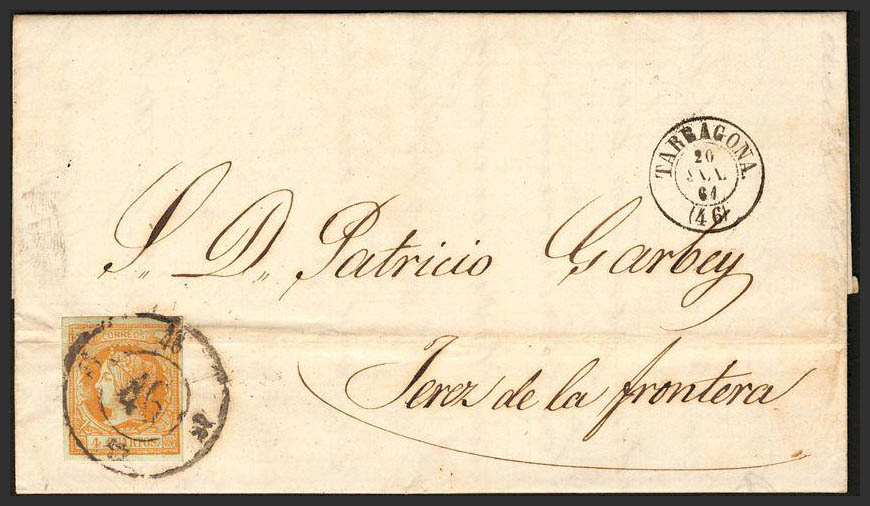 TARRAGONA.
20
(46)
S. D. Patricio Garbey
Jerez de la frontera
CORREOS
46